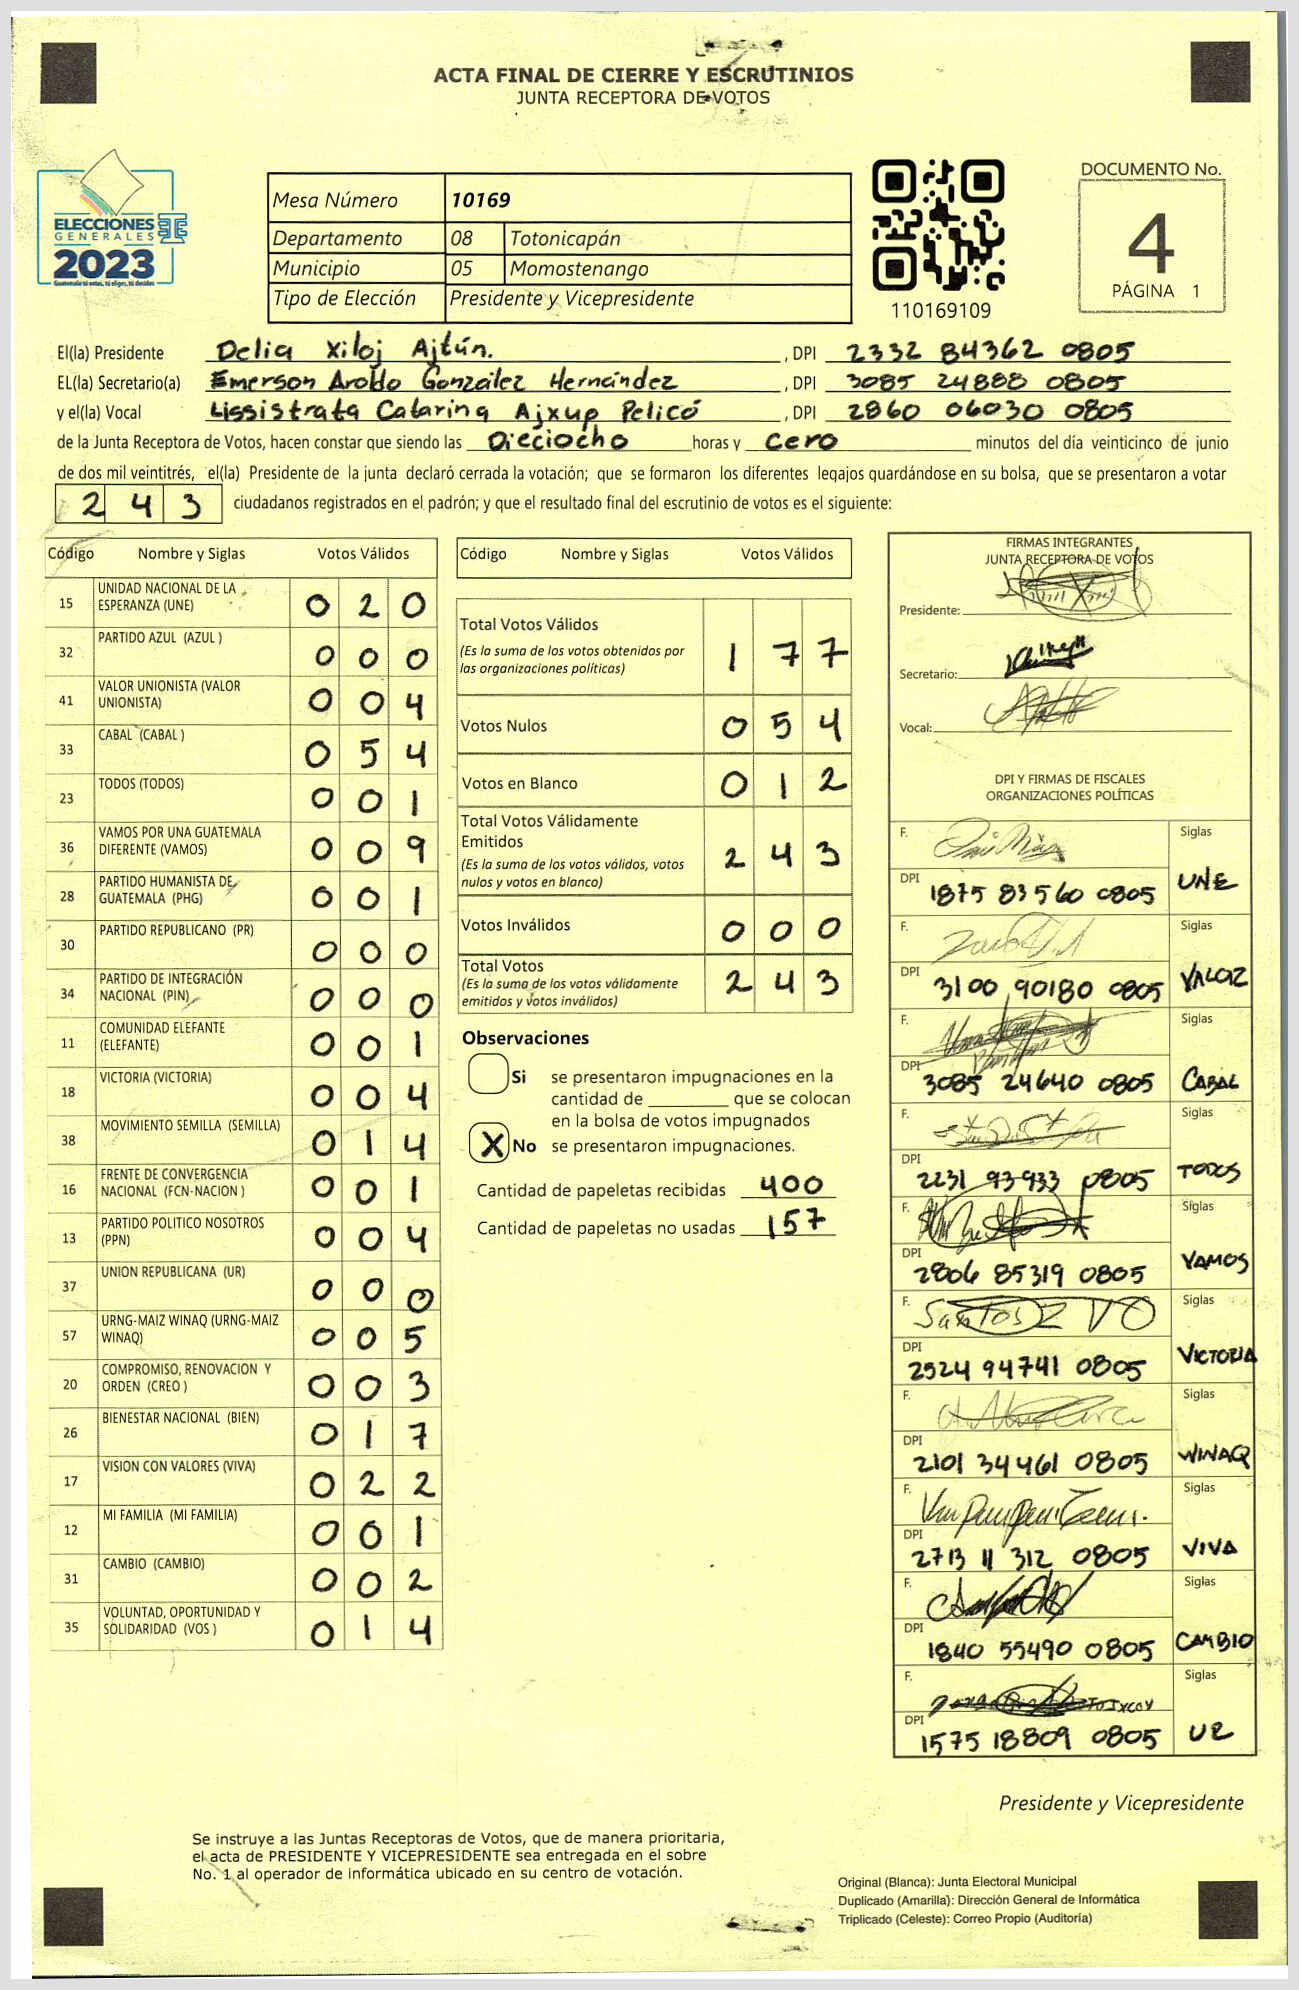 ACTA FINAL DE CIERRE Y ESCRUTINIOS
JUNTA RECEPTORA DE VOTOS
ELECCIONES
GENERALES
2023
Guatemala tú votas, tú eliges, tú decides
Mesa Número 10169
Departamento 08 Totonicapán
Municipio 05 Momostenango
Tipo de Elección Presidente y Vicepresidente
110169109
DOCUMENTO No.
4
PÁGINA 1
El(la) Presidente Delia Xiloj Ajtún. , DPI 2332 84362 0805
EL(la) Secretario(a) Emerson Aroldo González Hernández , DPI 3085 24888 0805
y el(la) Vocal Lissistrata Catarina Ajxup Pelicó , DPI 2860 06030 0805
de la Junta Receptora de Votos, hacen constar que siendo las Dieciocho horas y cero minutos del día veinticinco de junio
de dos mil veintitrés, el(la) Presidente de la junta declaró cerrada la votación; que se formaron los diferentes legajos quardándose en su bolsa, que se presentaron a votar
2 4 3 ciudadanos registrados en el padrón; y que el resultado final del escrutinio de votos es el siguiente:
Código Nombre y Siglas Votos Válidos
15 UNIDAD NACIONAL DE LA ESPERANZA (UNE) 0 2 0
32 PARTIDO AZUL (AZUL ) 0 0 0
41 VALOR UNIONISTA (VALOR UNIONISTA) 0 0 4
33 CABAL (CABAL ) 0 5 4
23 TODOS (TODOS) 0 0 1
36 VAMOS POR UNA GUATEMALA DIFERENTE (VAMOS) 0 0 9
28 PARTIDO HUMANISTA DE GUATEMALA (PHG) 0 0 1
30 PARTIDO REPUBLICANO (PR) 0 0 0
34 PARTIDO DE INTEGRACIÓN NACIONAL (PIN) 0 0 0
11 COMUNIDAD ELEFANTE (ELEFANTE) 0 0 1
18 VICTORIA (VICTORIA) 0 0 4
38 MOVIMIENTO SEMILLA (SEMILLA) 0 1 4
16 FRENTE DE CONVERGENCIA NACIONAL (FCN-NACION ) 0 0 1
13 PARTIDO POLITICO NOSOTROS (PPN) 0 0 4
37 UNION REPUBLICANA (UR) 0 0 0
57 URNG-MAIZ WINAQ (URNG-MAIZ WINAQ) 0 0 5
20 COMPROMISO, RENOVACION Y ORDEN (CREO ) 0 0 3
26 BIENESTAR NACIONAL (BIEN) 0 1 7
17 VISION CON VALORES (VIVA) 0 2 2
12 MI FAMILIA (MI FAMILIA) 0 0 1
31 CAMBIO (CAMBIO) 0 0 2
35 VOLUNTAD, OPORTUNIDAD Y SOLIDARIDAD (VOS ) 0 1 4
Código Nombre y Siglas Votos Válidos
Total Votos Válidos 1 7 7
(Es la suma de los votos obtenidos por
las organizaciones políticas)
Votos Nulos 0 5 4
Votos en Blanco 0 1 2
Total Votos Válidamente
Emitidos 2 4 3
(Es la suma de los votos válidos, votos
nulos y votos en blanco)
Votos Inválidos 0 0 0
Total Votos 2 4 3
(Es la suma de los votos válidamente
emitidos y votos inválidos)
Observaciones
Si se presentaron impugnaciones en la
cantidad de ________ que se colocan
en la bolsa de votos impugnados
X No se presentaron impugnaciones.
Cantidad de papeletas recibidas 400
Cantidad de papeletas no usadas 157
FIRMAS INTEGRANTES
JUNTA RECEPTORA DE VOTOS
Presidente:
Secretario:
Vocal:
DPI Y FIRMAS DE FISCALES
ORGANIZACIONES POLÍTICAS
F. Siglas
DPI 1875 83560 0805 UNE
F. Siglas
DPI 3100 90180 0805 VALOR
F. Siglas
DPI 3085 24640 0805 CABAL
F. Siglas
DPI 2231 93933 0805 TODOS
F. Siglas
DPI 2806 85319 0805 VAMOS
F. Siglas
DPI 2524 94741 0805 VICTORIA
F. Siglas
DPI 2101 34461 0805 WINAQ
F. Siglas
DPI 2713 11 312 0805 VIVA
F. Siglas
DPI 1840 55490 0805 CAMBIO
F. Siglas
DPI 1575 18809 0805 UR
Presidente y Vicepresidente
Se instruye a las Juntas Receptoras de Votos, que de manera prioritaria,
el acta de PRESIDENTE Y VICEPRESIDENTE sea entregada en el sobre
No. 1 al operador de informática ubicado en su centro de votación.
Original (Blanca): Junta Electoral Municipal
Duplicado (Amarilla): Dirección General de Informática
Triplicado (Celeste): Correo Propio (Auditoría)